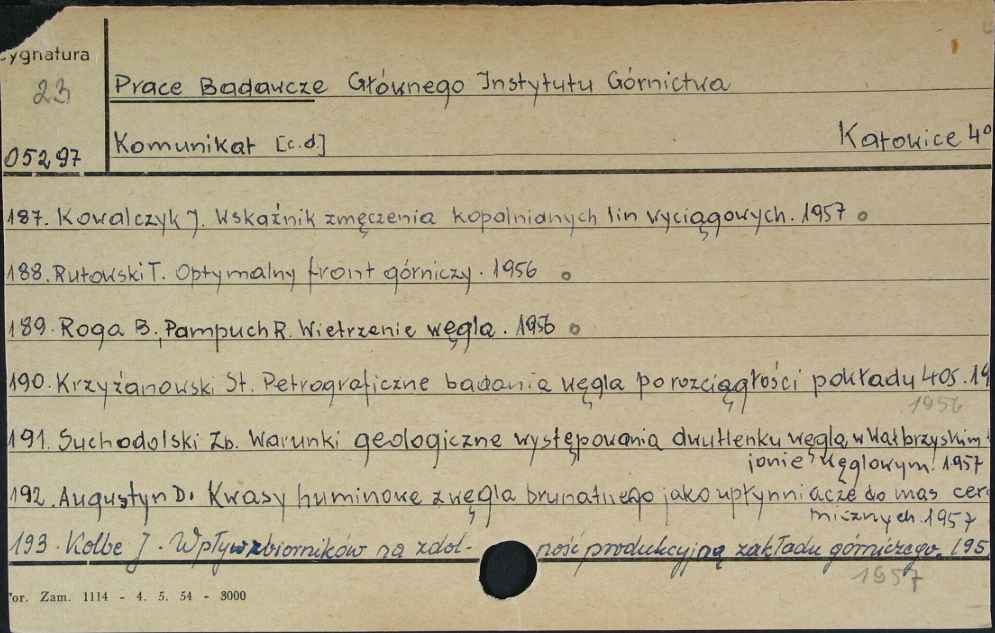 ygnatura
23
Prace Badawcze Głównego Instytutu Górnictwa
05297
Komunikat [c.d] Katowice 4°
187. Kowalczyk J. Wskaźnik zmęczenia kopalnianych lin wyciągowych. 1957
188. Rutowski T. Optymalny front górniczy. 1956
189. Roga B., Pampuch R. Wietrzenie węgla. 1956
190. Krzyżanowski St. Petrograficzne badania węgla po rozciągłości pokładu 405. 19
1956
191. Suchodolski Zb. Warunki geologiczne występowania dwutlenku węgla w Wałbrzyskim
jonie węglowym. 1957
192. Augustyn D. Kwasy huminowe z węgla brunatnego jako upłynniacze do mas cera
micznych. 1957
193. Kolbe J. Wpływ zbiorników na zdolność produkcyjną zakładu górniczego. 195
1957
or. Zam. 1114 - 4. 5. 54 - 3000